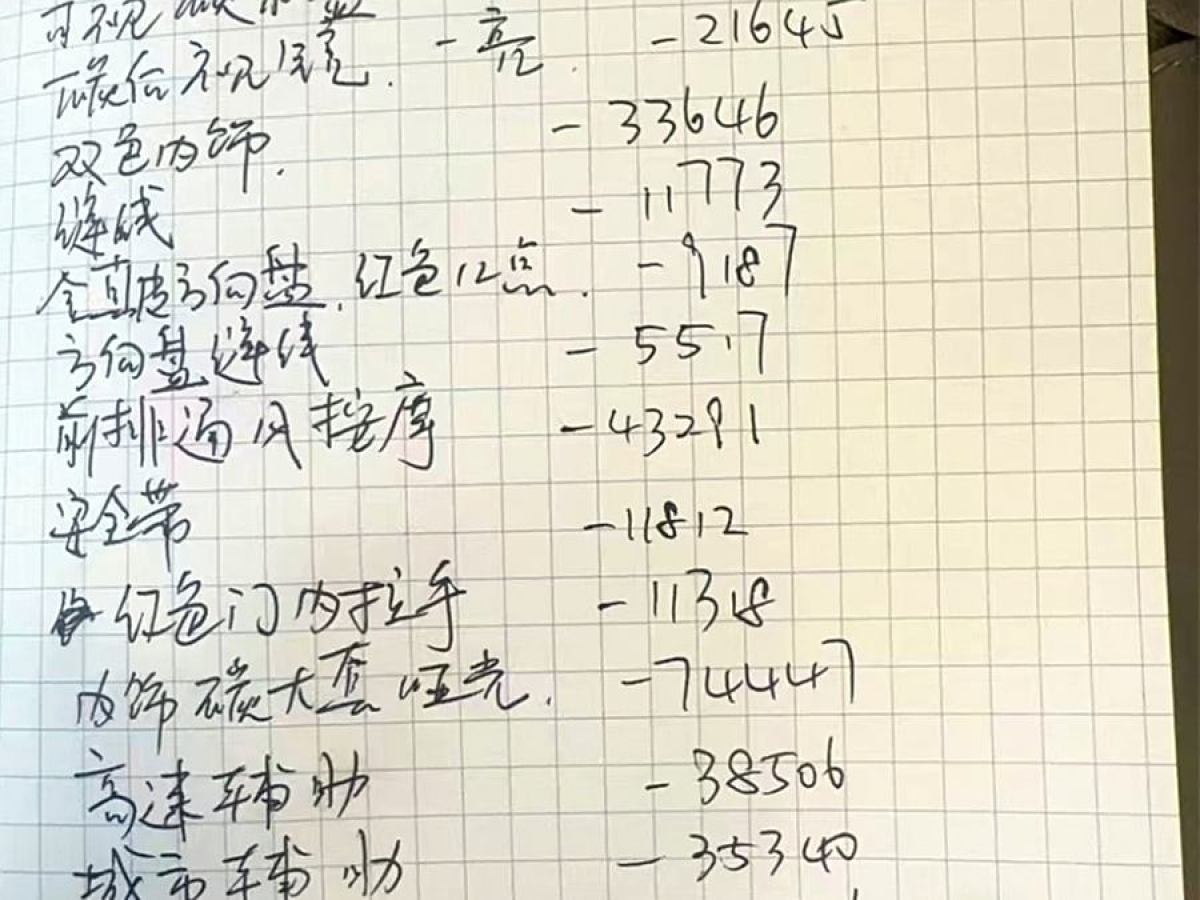 碳后视镜. - 亮 - 21645
双色内饰. - 33646
缝线 - 11773
全真皮方向盘. 红色12点. - 9187
方向盘缝线 - 5517
前排通风按摩 - 43291
安全带 - 11812
红色门内拉手 - 11318
内饰碳大套 哑光. - 74447
高速辅助 - 38506
城市辅助 - 35340